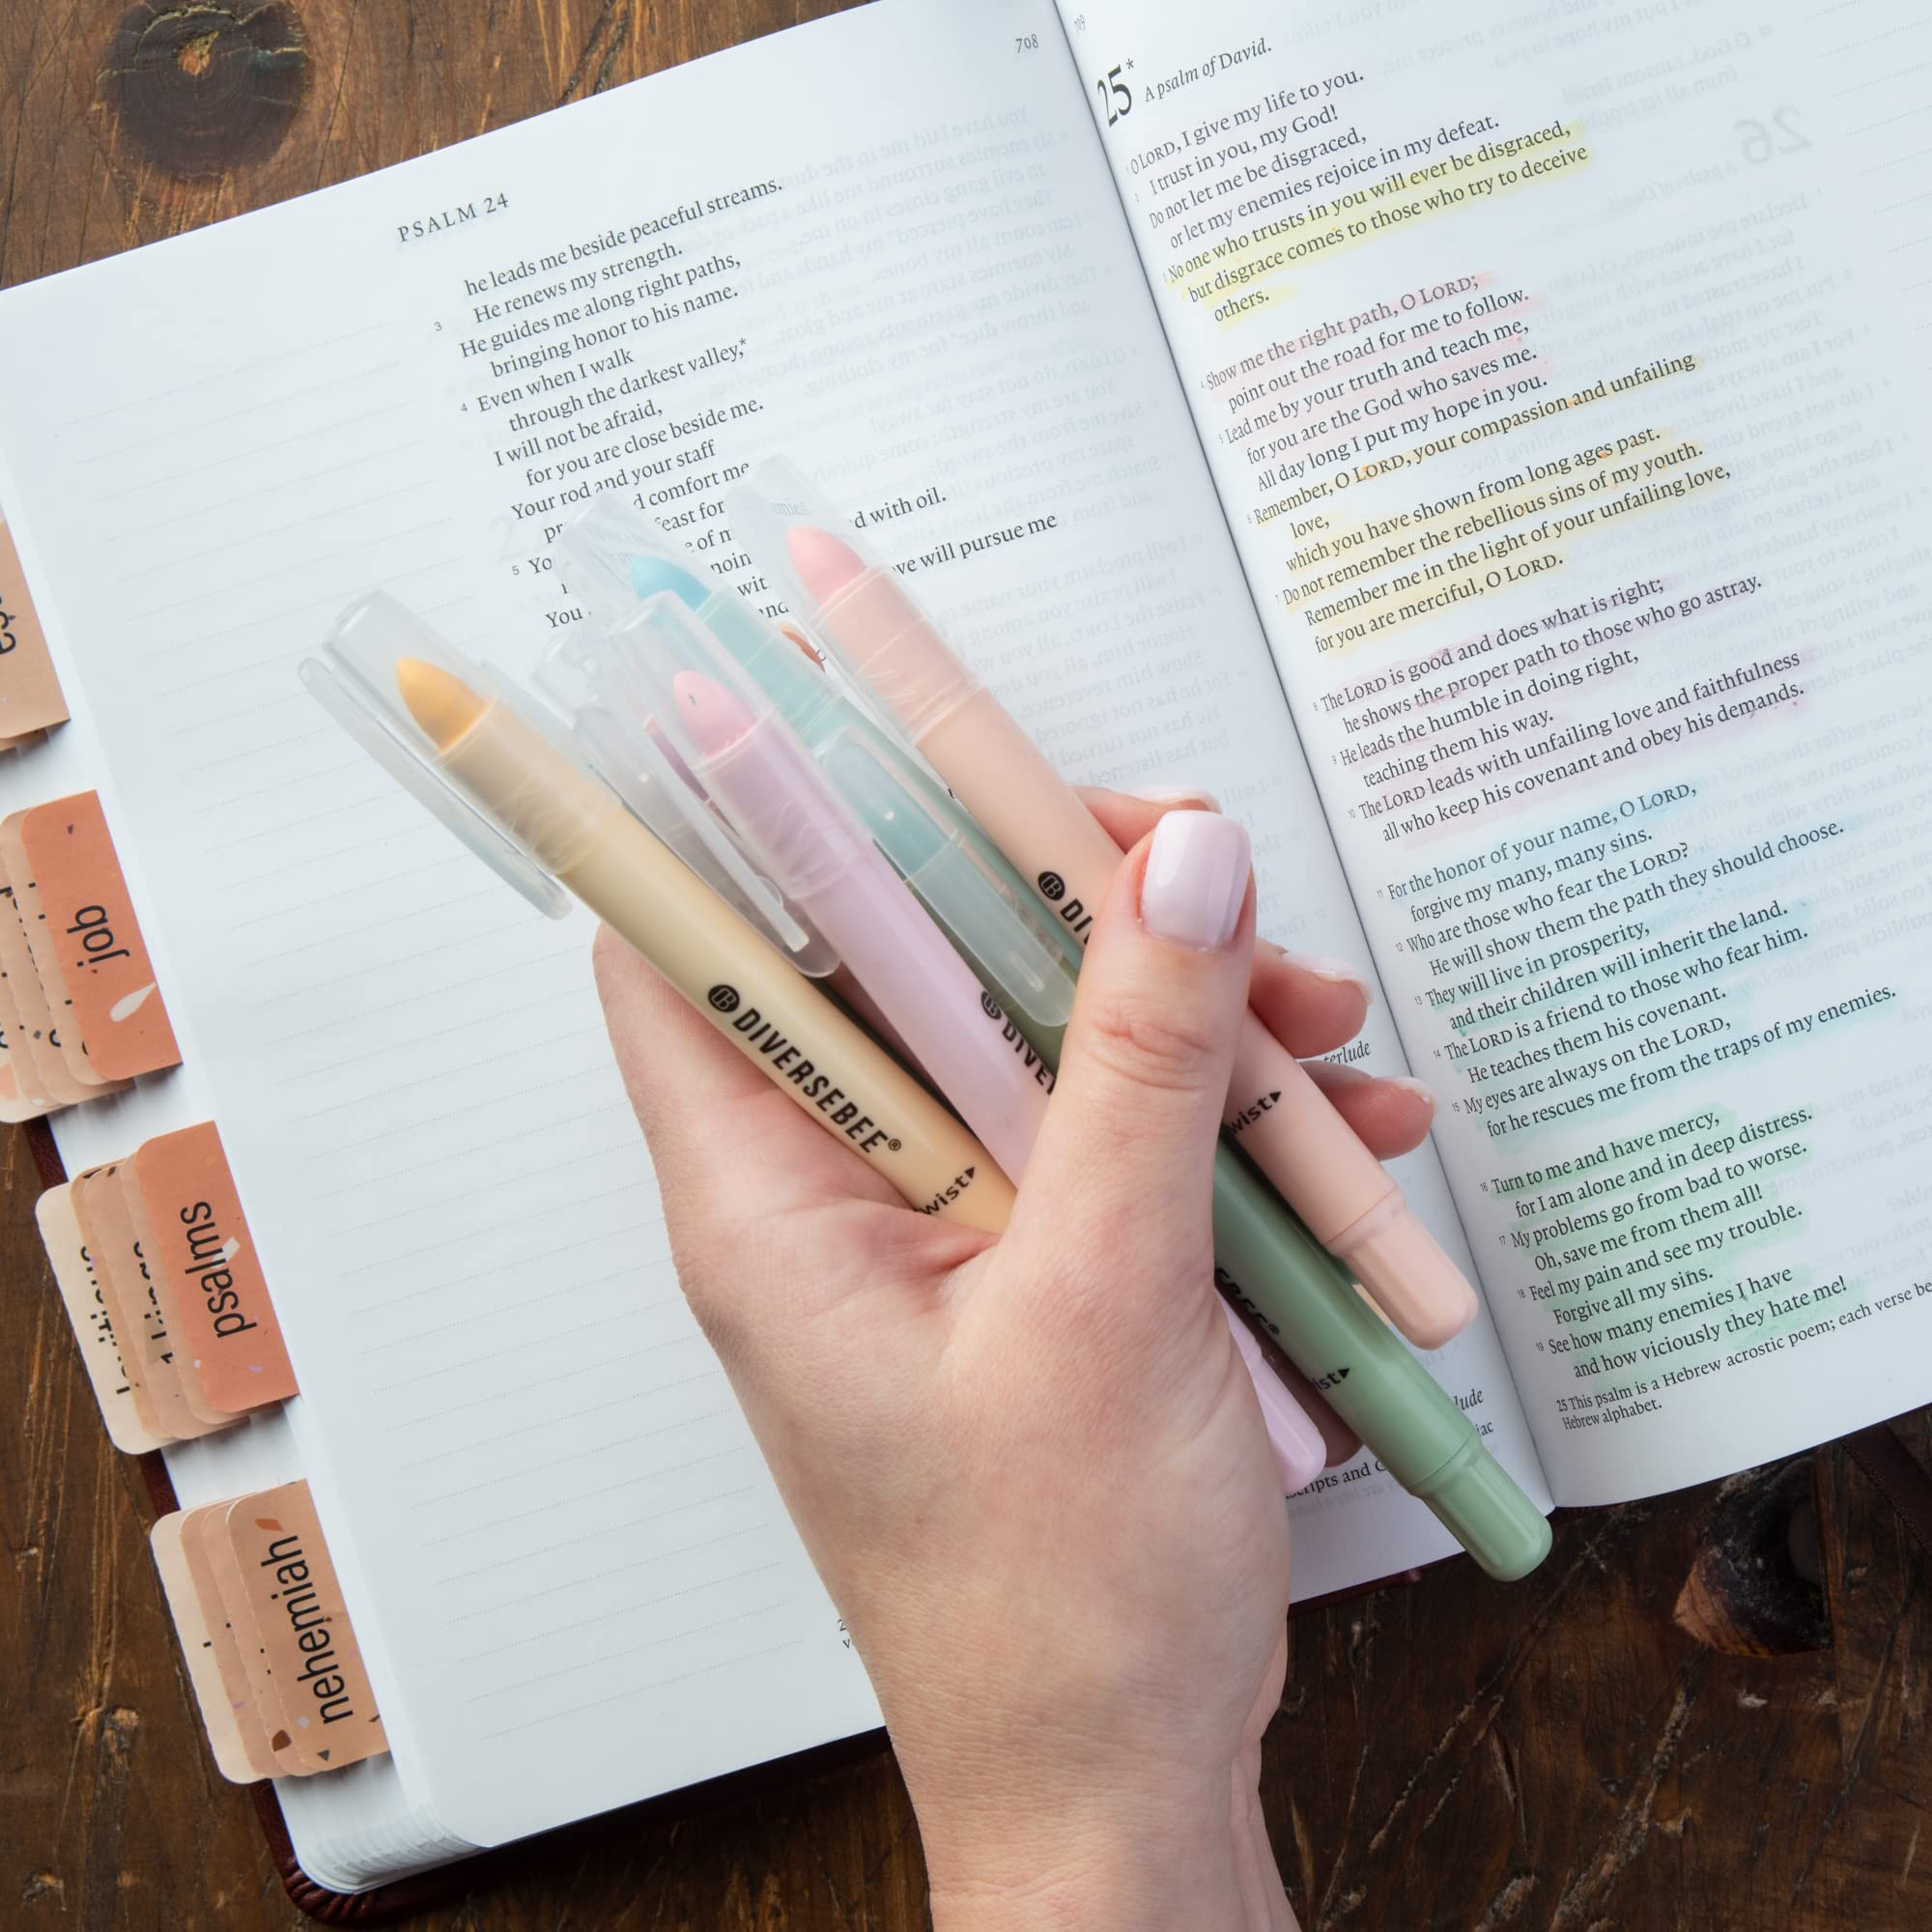 708
PSALM 24
he leads me beside peaceful streams.
3 He renews my strength.
He guides me along right paths,
bringing honor to his name.
4 Even when I walk
through the darkest valley,*
I will not be afraid,
for you are close beside me.
Your rod and your staff
d comfort me
feast for
of m
5 Yo
d with oil.
You
ve will pursue me
25*
A psalm of David.
1 O LORD, I give my life to you.
2 I trust in you, my God!
Do not let me be disgraced,
or let my enemies rejoice in my defeat.
3 No one who trusts in you will ever be disgraced,
but disgrace comes to those who try to deceive
others.
4 Show me the right path, O LORD;
point out the road for me to follow.
5 Lead me by your truth and teach me,
for you are the God who saves me.
All day long I put my hope in you.
6 Remember, O LORD, your compassion and unfailing
love,
which you have shown from long ages past.
7 Do not remember the rebellious sins of my youth.
Remember me in the light of your unfailing love,
for you are merciful, O LORD.
8 The LORD is good and does what is right;
he shows the proper path to those who go astray.
9 He leads the humble in doing right,
teaching them his way.
10 The LORD leads with unfailing love and faithfulness
all who keep his covenant and obey his demands.
11 For the honor of your name, O LORD,
forgive my many, many sins.
12 Who are those who fear the LORD?
He will show them the path they should choose.
13 They will live in prosperity,
and their children will inherit the land.
14 The LORD is a friend to those who fear him.
He teaches them his covenant.
15 My eyes are always on the LORD,
for he rescues me from the traps of my enemies.
16 Turn to me and have mercy,
for I am alone and in deep distress.
17 My problems go from bad to worse.
Oh, save me from them all!
18 Feel my pain and see my trouble.
Forgive all my sins.
19 See how many enemies I have
and how viciously they hate me!
25 This psalm is a Hebrew acrostic poem; each verse be
Hebrew alphabet.
job
psalms
nehemiah
DIVERSEBEE®
wist
DIVE
DI
wist
EBEE®
ist